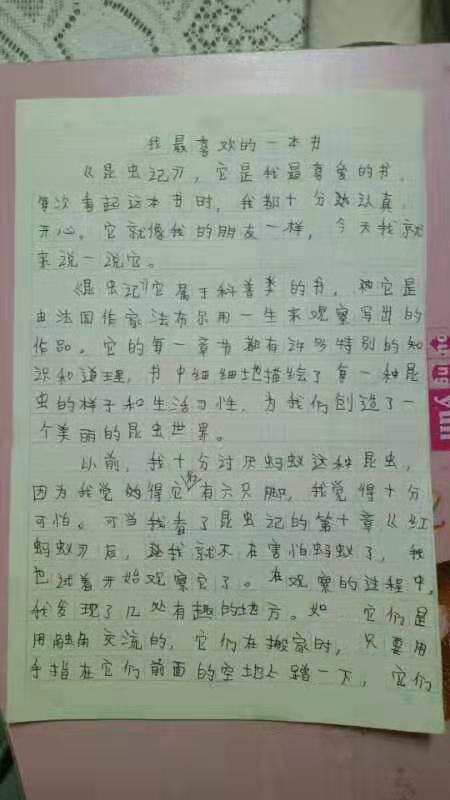 我最喜欢的一本书
《昆虫记》，它是我最喜爱的书，
每次看起这本书时，我都十分认真，
开心。它就像我的朋友一样，今天我就
来说一说它。
《昆虫记》它属于科普类的书，它是
由法国作家法布尔用一生来观察写出的
作品。它的每一章节都有许多特别的知
识和道理，书中细细地描绘了每一种昆
虫的样子和生活习性，为我们创造了一
个美丽的昆虫世界。
以前，我十分讨厌蚂蚁这种昆虫，
因为我觉得它有六只脚，我觉得十分
可怕。可当我看了昆虫记的第十章《红
蚂蚁》后，我就不在害怕蚂蚁了，我
也试着开始观察它了。在观察的过程中，
我发现了几处有趣的地方。如 它们是
用触角交流的，它们在搬家时，只要用
手指在它们前面的空地上踏一下，它们
yun